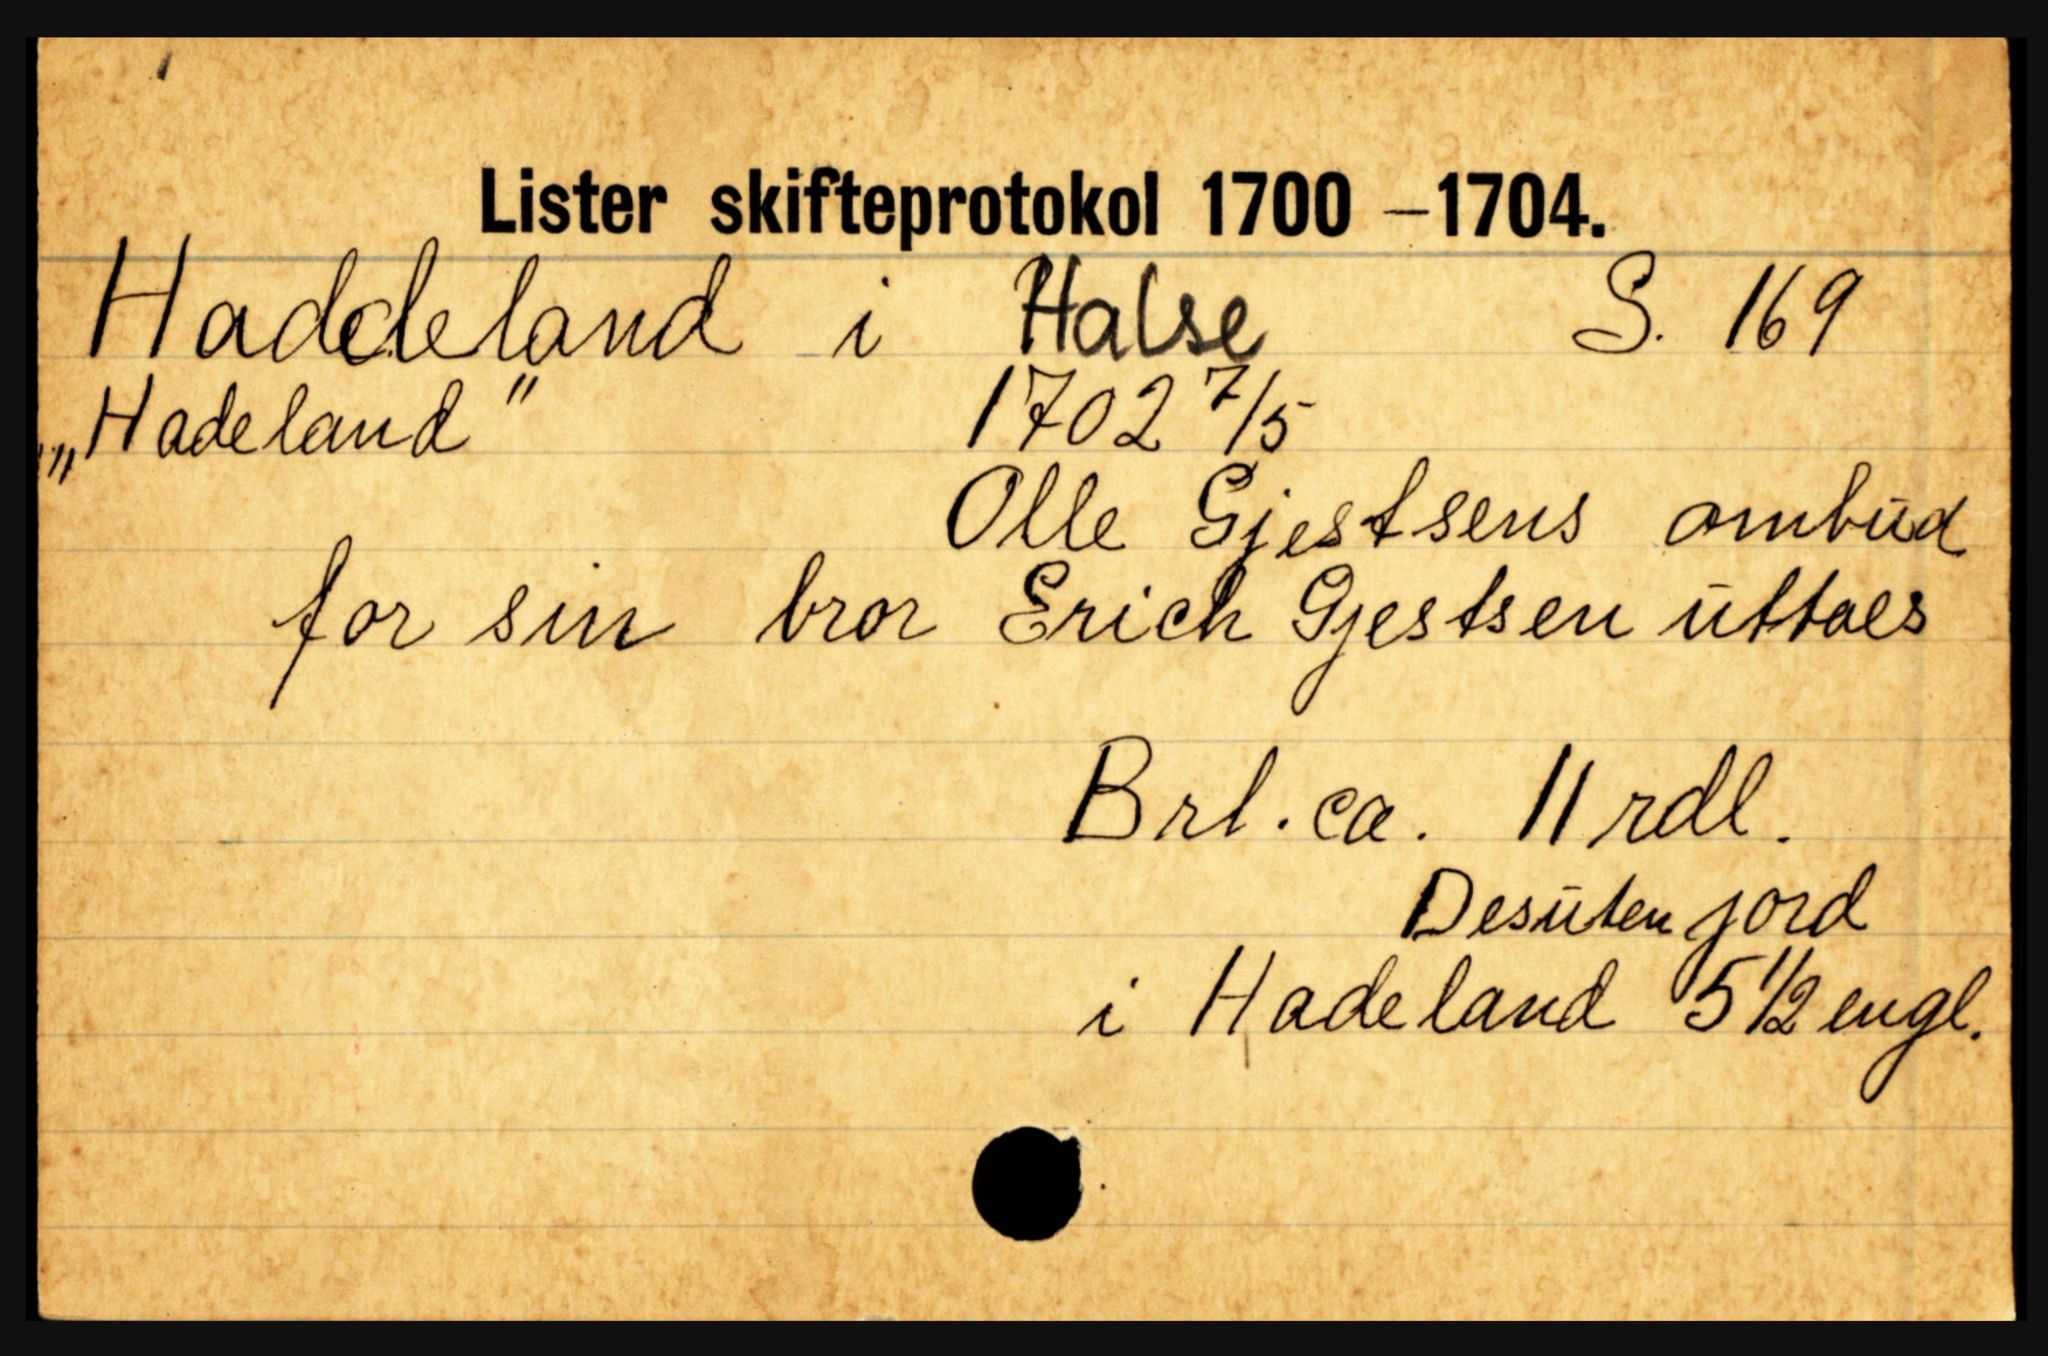 Lister skifteprotokol 1700 – 1704.
Haddeland i Halse S. 169
„Hadeland" 1702 7/5
Olle Gjestsens ombud
for sin bror Erich Gjestsen uttaes
Brl. ca. 11 rdl.
Desuten jord
i Hadeland 5 1/2 engl.